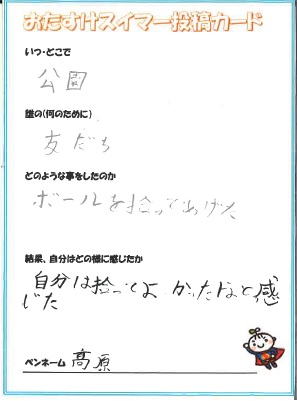 おたすけスイマー投稿カード
いつ・どこで
公園
誰の(何のために)
友だち
どのような事をしたのか
ボールを拾ってあげた
結果、自分はどの様に感じたか
自分は拾ってよかったなと感
じた
ペンネーム 高原